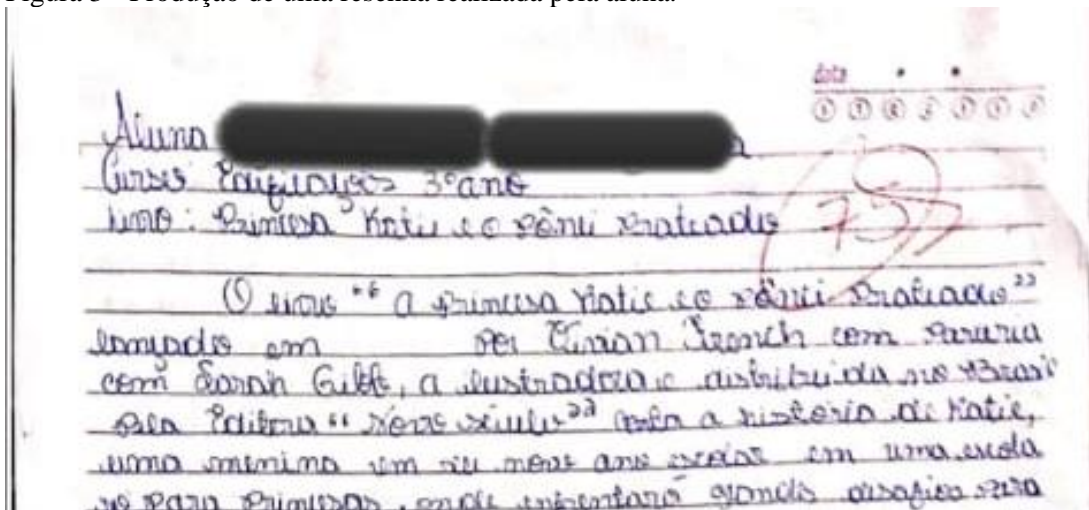 Figura 3 - Produção de uma resenha realizada pela aluna.
data
Aluna
Curso: Edificações 3º ano
Livro: Princesa Katie e o Pônei Prateado
75
O livro "A princesa Katie e o Pônei Prateado"
lançado em por Vivian French com pararia
com Sarah Gibb, a ilustradora e distribuida no Brasil
pela Editora "Novo século" conta a história de Katie,
uma menina em seu novo ano escolar em uma escola
só para Princesas, onde enfrentará grandes desafios para